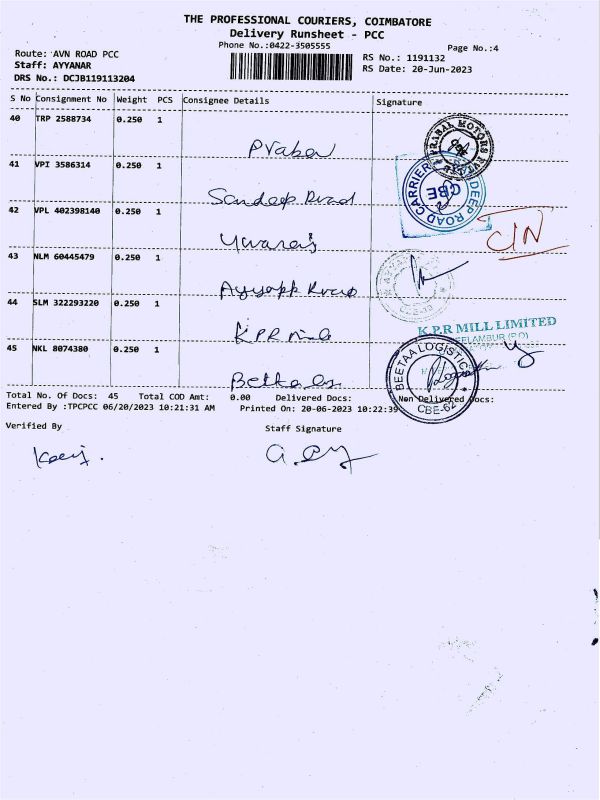 THE PROFESSIONAL COURIERS, COIMBATORE
Delivery Runsheet - PCC
Phone No.:0422-3505555
Page No.:4
Route: AVN ROAD PCC
RS No.: 1191132
Staff: AYYANAR
RS Date: 20-Jun-2023
DRS No.: DCJB119113204
S No Consignment No Weight PCS Consignee Details Signature
40 TRP 2588734 0.250 1
PRABAL MOTORS
41 VPI 3586314 0.250 1
Sandeep Road
DEEP ROAD CARRIER
CBE
42 VPL 402398140 0.250 1
Yuvaraj
C/N
43 NLM 60445479 0.250 1
44 SLM 322293220 0.250 1
K.P.R Mill
K.P.R MILL LIMITED
45 NKL 8074380 0.250 1
BEETAA LOGISTICS
CBE-62
Total No. Of Docs: 45 Total COD Amt: 0.00 Delivered Docs: Non Delivered Docs:
Entered By :TPCPCC 06/20/2023 10:21:31 AM Printed On: 20-06-2023 10:22:39
Verified By Staff Signature